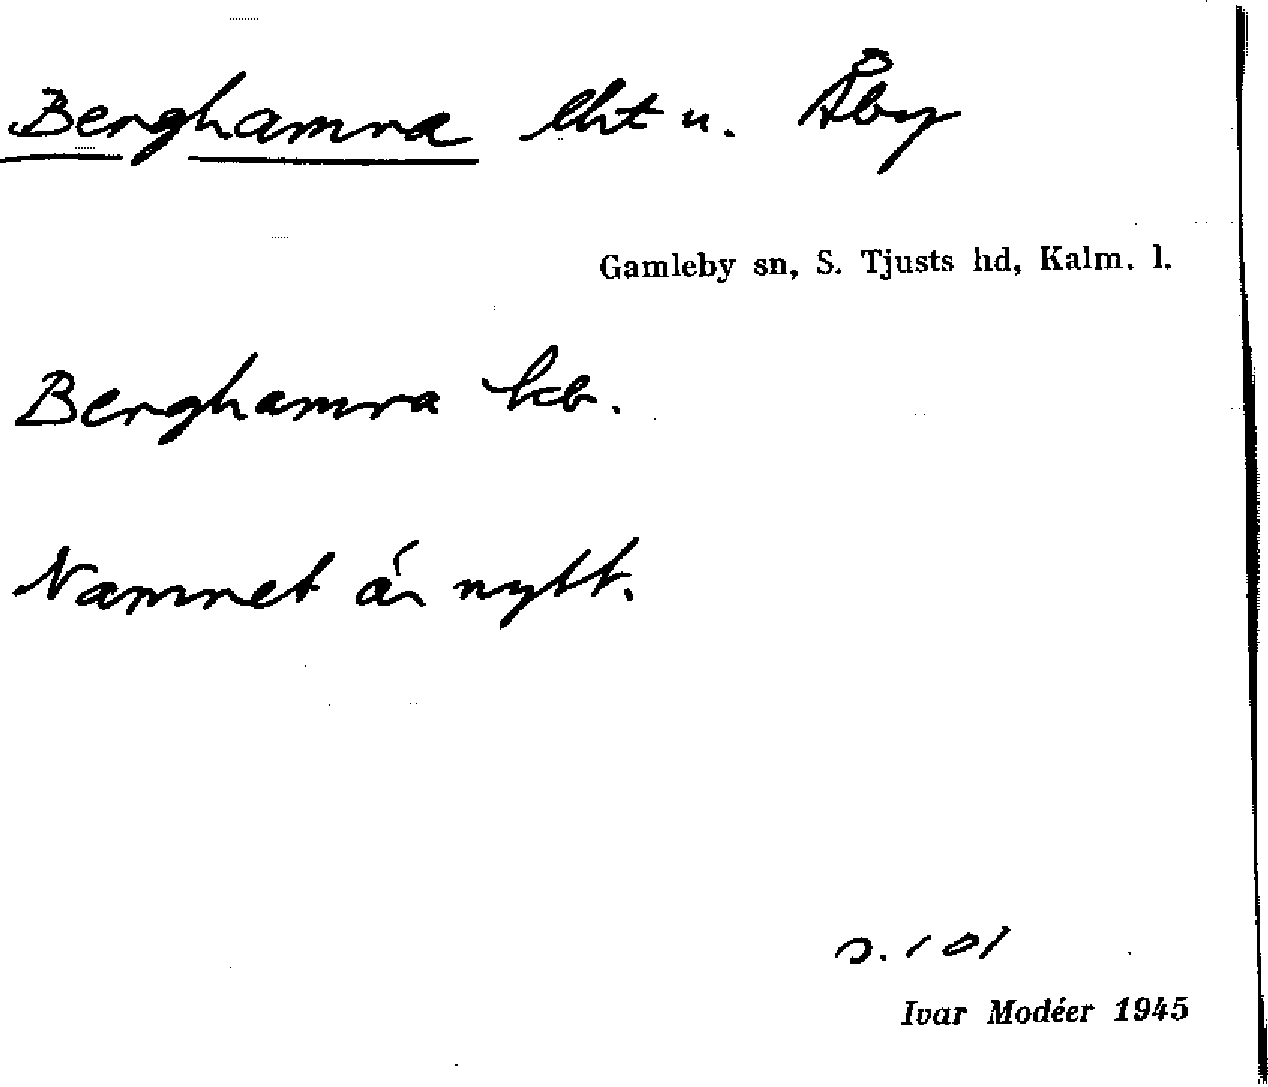 Berghamra lht u. Åby
Gamleby sn, S. Tjusts hd, Kalm. l.
Berghamra kb.
Namnet är nytt.
s. 101
Ivar Modéer 1945